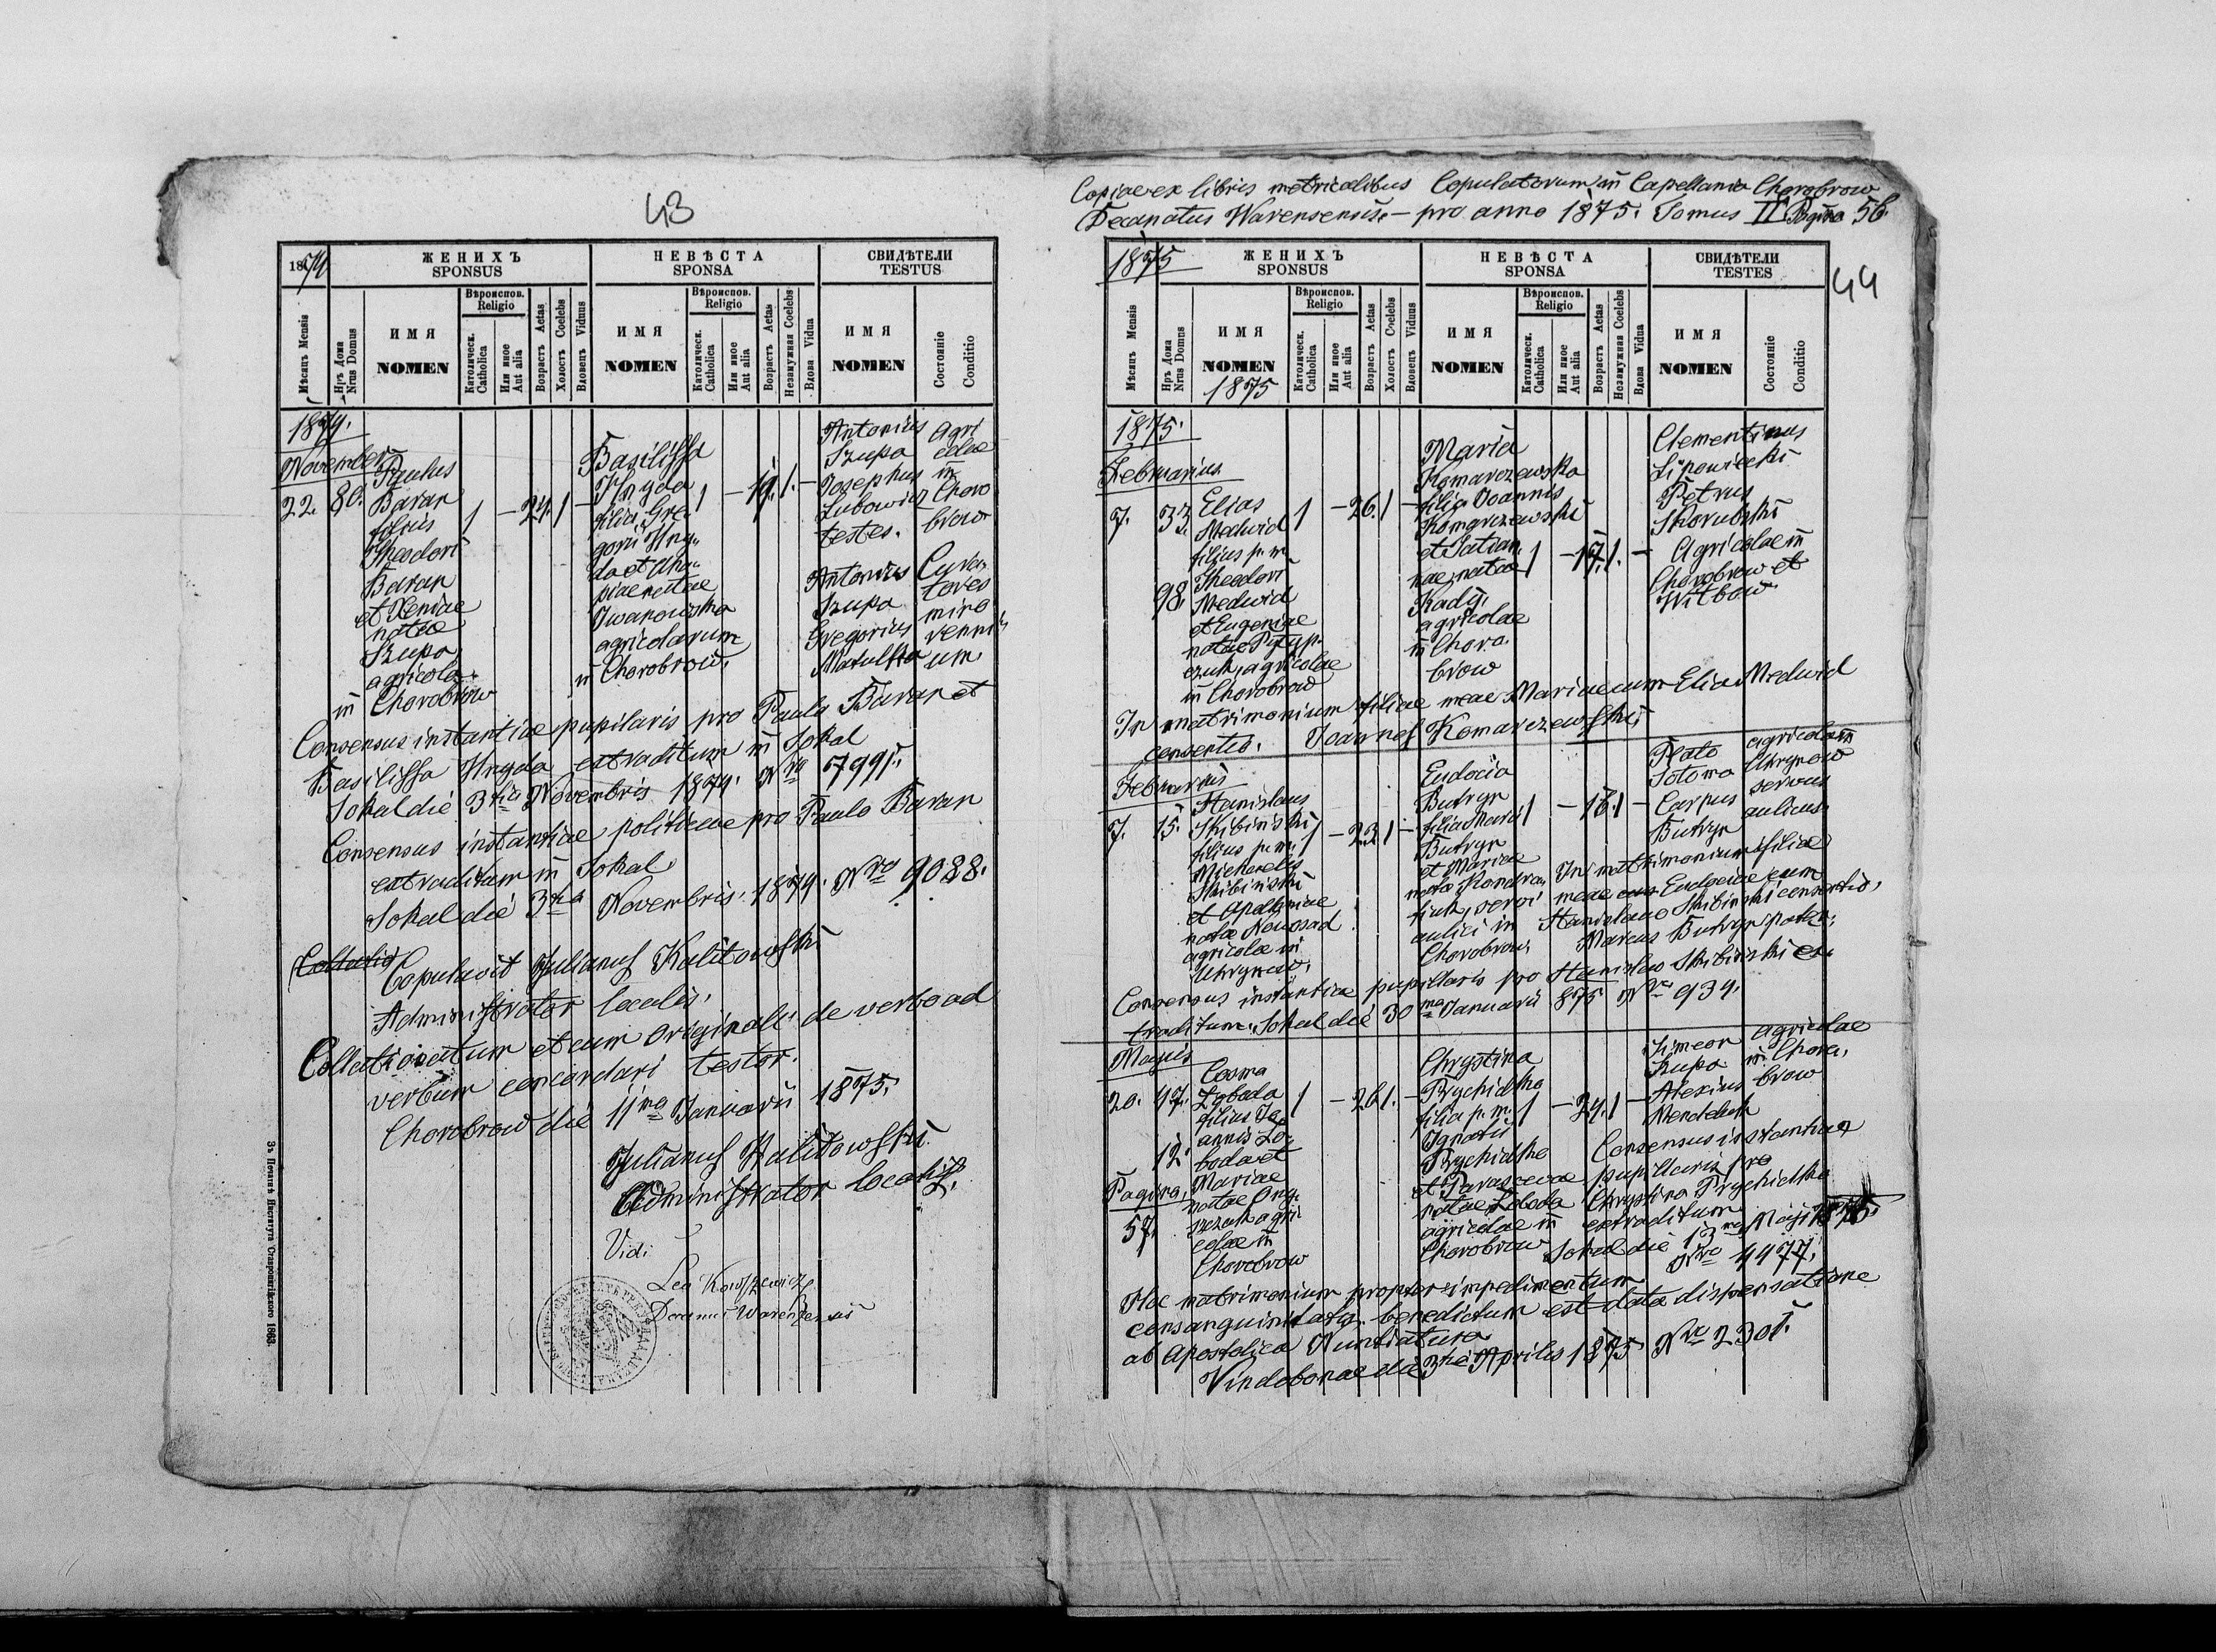 43
1874
ЖЕНИХЪ
SPONSUS
НЕВѢСТА
SPONSA
СВИДѢТЕЛИ
TESTUS
Мѣсяцъ Mensis
Нръ Дома
Nrus Domus
ИМЯ
NOMEN
Вѣроиспов.
Religio
Католическ.
Catholica
Или иное
Aut alia
Возрастъ Aetas
Холостъ Coelebs
Вдовецъ Viduus
ИМЯ
NOMEN
Вѣроиспов.
Religio
Католическ.
Catholica
Или иное
Aut alia
Возрастъ Aetas
Незамужная Coelebs
Вдова Vidua
ИМЯ
NOMEN
Состояніе
Conditio
1874.
November
22. 80.
Paulus
Baran
filius
Theodori
Baran
et Xeniae
natae
Szupa
agricola
in Chorobrow
1 – 24. 1 –
Basilissa
Hnyda
filia Gre
gorii Hny
da et Aha
piae natae
Iwanowska
agricolarum
in Chorobrow.
1 – 19. 1. –
Antonius
Szupa
Josephus
Lubowicz
testes.
Agri
colae
in
Choro
brow
Antonius
Szupa
Gregorius
Matulka
Cura
tores
mino
rennium
Consensus instantiae pupilaris pro Paulo Baran et
Basilissa Hnyda extraditum in Sokal
Sokal die 3tia Novembris 1874. Nro 7991.
Consensus instantiae politicae pro Paulo Baran
extraditum in Sokal
Sokal die 3tia Novembris. 1874. Nro 9088.
Collatio
Copulavit Julianus Kulitowski
Administrator localis.
Collationatum et cum originali de verbo ad
verbum concordari testor.
Chorobrow die 11ma Januarii 1875.
Julianus Kulitowski
Administrator localis.
Vidi
Leo
Decanus Warenzensis
Въ Печатнѣ Института Ставропигійского 1863.
Copiae ex libris metricalibus Copulatorum in Capellania Chorobrow
Decanatus Warensensis. – pro anno 1875. Tomus II Pagina 56.
44
1875
ЖЕНИХЪ
SPONSUS
НЕВѢСТА
SPONSA
СВИДѢТЕЛИ
TESTES
Мѣсяцъ Mensis
Нръ Дома
Nrus Domus
ИМЯ
NOMEN
1875
Вѣроиспов.
Religio
Католическ.
Catholica
Или иное
Aut alia
Возрастъ Aetas
Холостъ Coelebs
Вдовецъ Viduus
ИМЯ
NOMEN
Вѣроиспов.
Religio
Католическ.
Catholica
Или иное
Aut alia
Возрастъ Aetas
Незамужная Coelebs
Вдова Vidua
ИМЯ
NOMEN
Состояніе
Conditio
1875.
Februarius
7. 33.
98.
Elias
Medwid
filius p. m.
Theodori
Medwid
et Eugeniae
natae Potyp
czuk, agricolae
in Chorobrow
1 – 26. 1 –
Maria
Komarzewska
filia Joannis
Komarzewski
et Tatian
nae natae
Kady.
agricolae
in Choro
brow
1 – 17. 1. –
Clementinus
Lipowiecki
Petrus
Skorubski
Agricolae in
Chorobrow et
Witkow.
In matrimonium filiae meae Mariae cum Elia Medwid
consentio. Joannes Komarzewski
Februarius
7. 15.
Stanislaus
Skibinski
filius p. m.
Michaelis
Skibinski
et Apoloniae
nata Nowosad
agricola in
Uhrynow.
1 – 23. 1 –
Eudocia
Butryn
filia Marci
Butryn
et Mariae
nata Kondra
tiuk, servi
aulici in
Chorobrow.
1 – 18. 1 –
Plato
Sotoma
Carpus
Butryn
agricola in
Uhrynow
servus
aulicus
In matrimonium filiae
meae Eudociae cum
Stanislao Skibinski consentio.
Marcus Butryn pater.
Consensus instantiae pupillaris pro Stanislao Skibinski ex
traditum. Sokal die 30ma Januarii 875 Nro 939.
Majus
20. 47.
12
Pagina
57.
Cosma
Loboda
filius Jo
annis Lo
boda et
Mariae
natae
agri
colae in
Chorobrow
1 – 26 1. –
Chrystina
Prychidko
filia p. m.
Ignatii
Prychidko
et Parasceve
natae Loboda
agricolae in
Chorobrow
1 – 24. 1 –
Simeon
Szupa
Alexius
Mendeluk
agricolae
in Choro
brow
Consensus instantiae
pupillaris pro
Chrystina Prychidko
extraditum
Sokal die 13ma Maji 1875.
Nro 4477.
Hoc matrimonium propter impedimentum
consanguinitatis benedictum est data dispensatione
ab Apostolica Nuntiatura
Vindobonae die 3tia Aprilis 1875 Nro 2301.